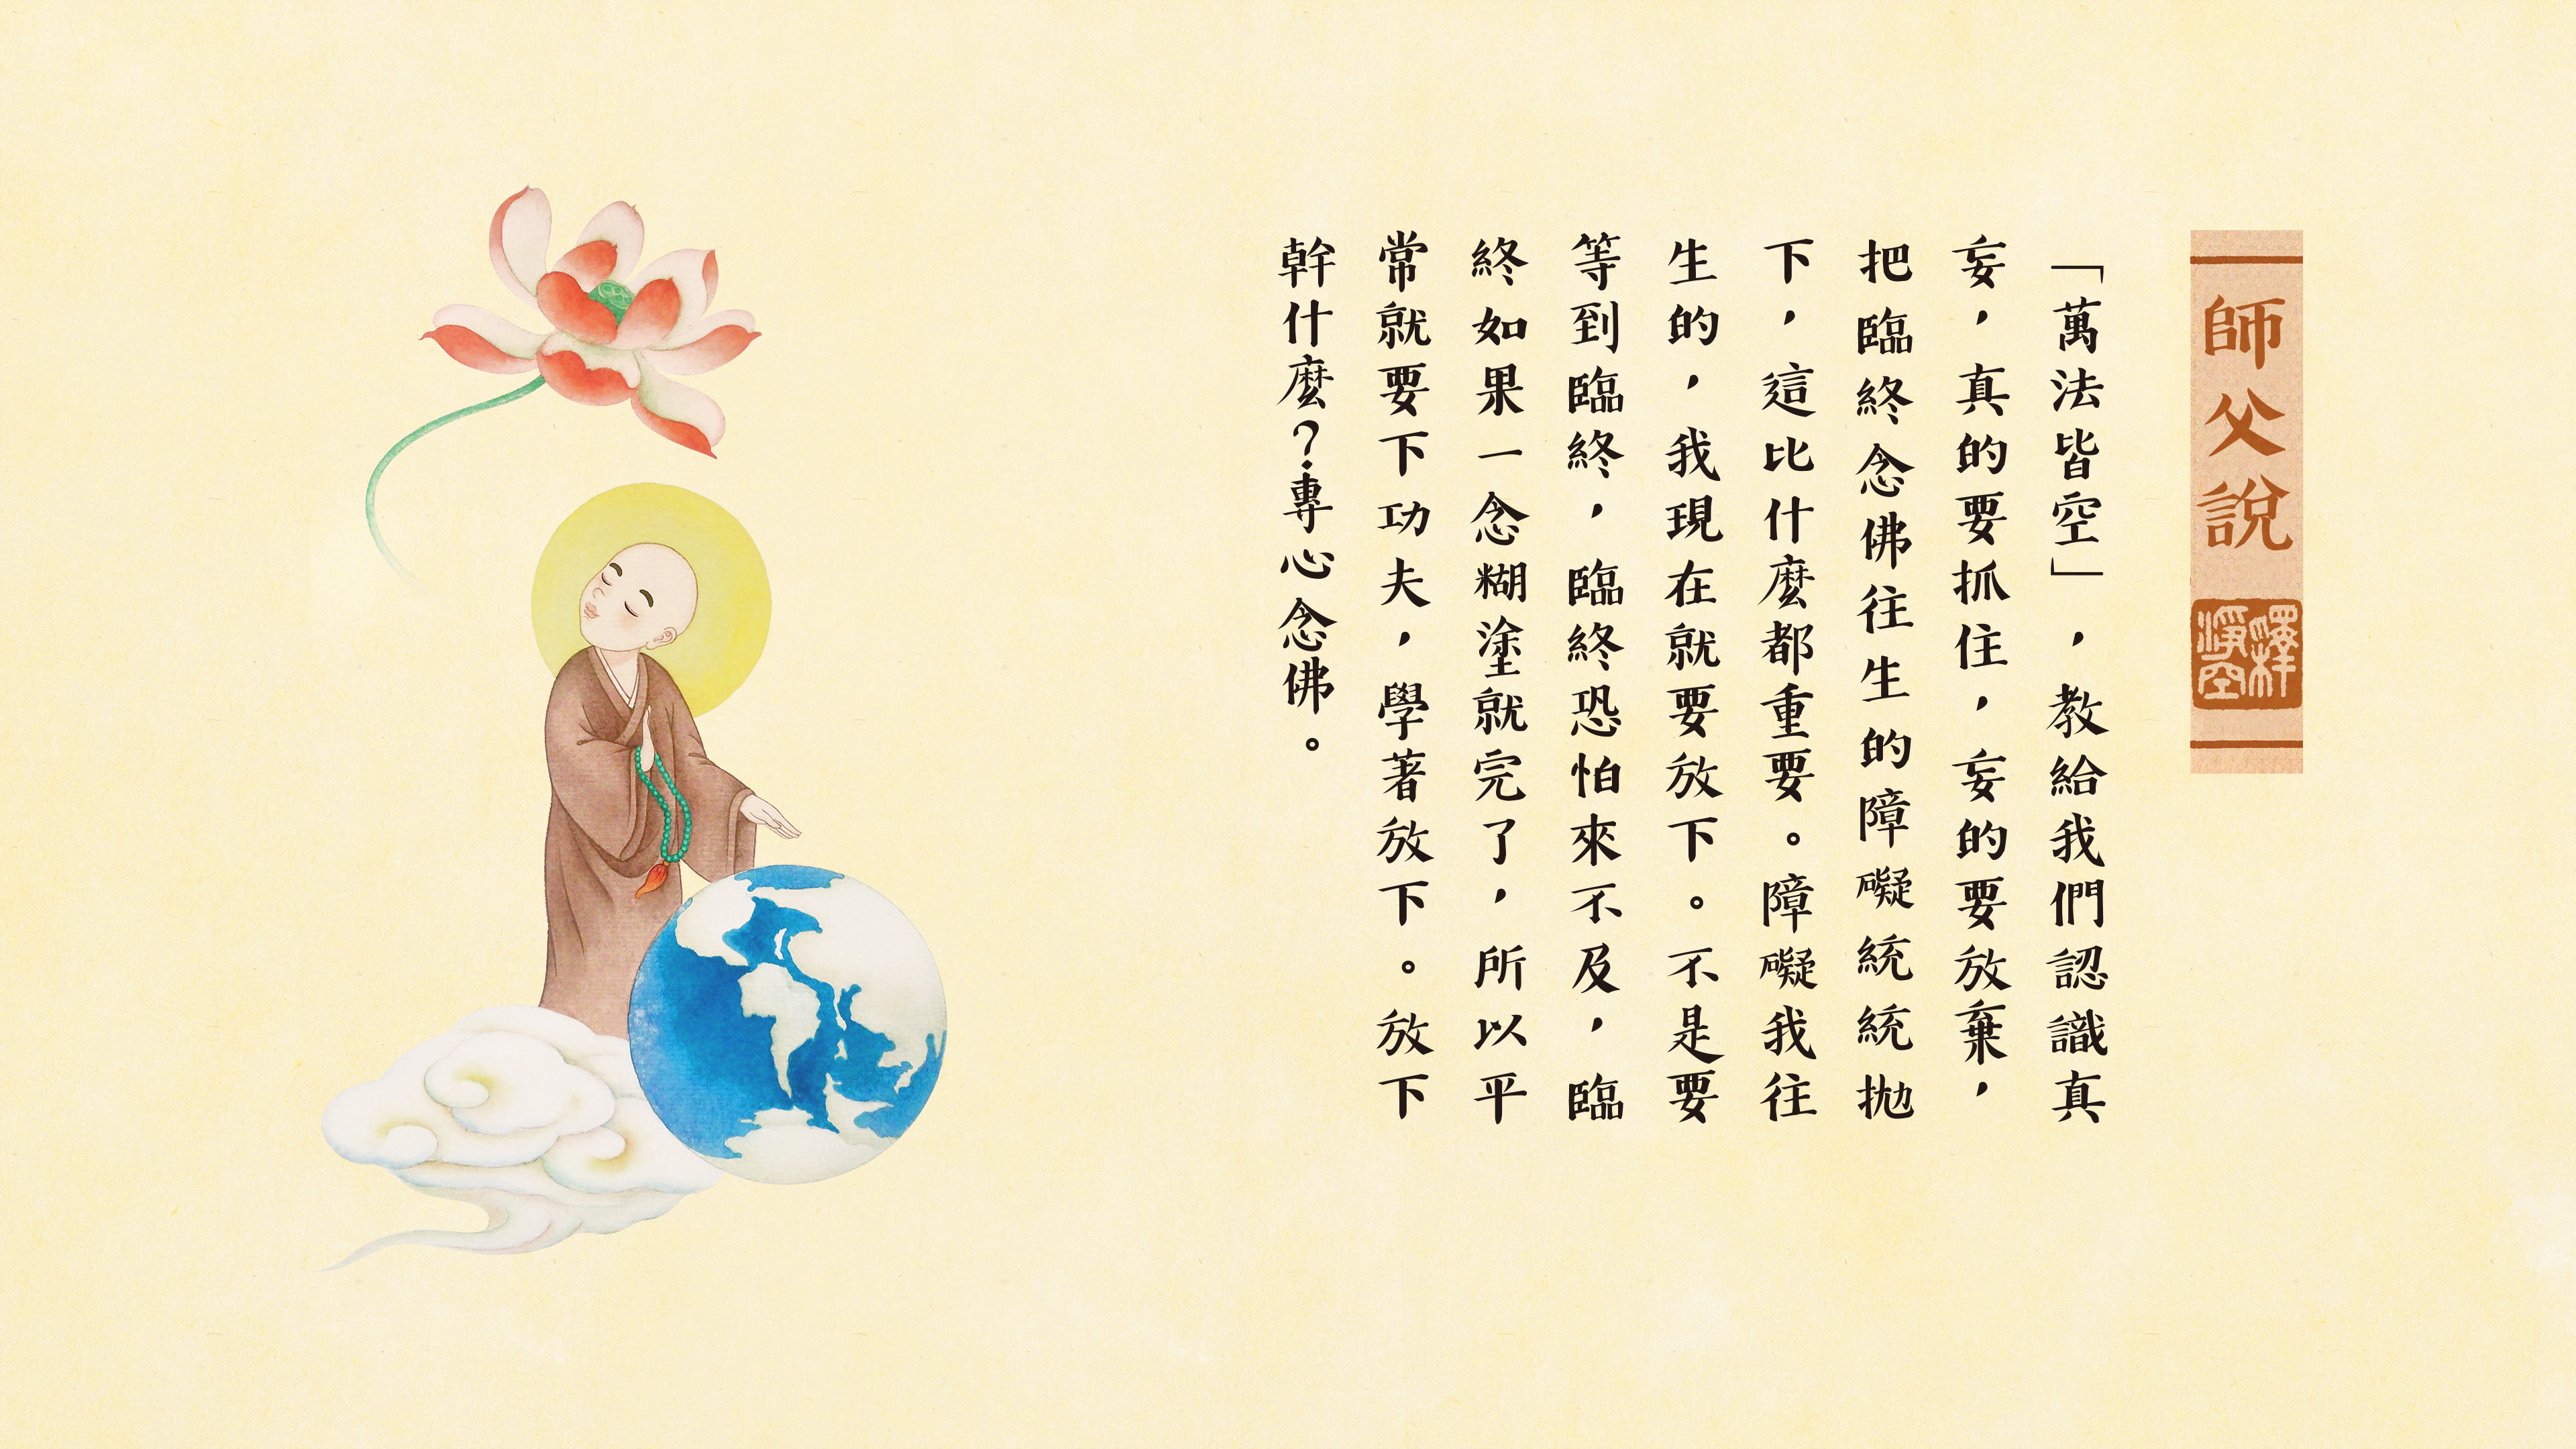 師父說
釋淨空
「萬法皆空」，教給我們認識真
妄，真的要抓住，妄的要放棄，
把臨終念佛往生的障礙統統拋
下，這比什麼都重要。障礙我往
生的，我現在就要放下。不是要
等到臨終，臨終恐怕來不及，臨
終如果一念糊塗就完了，所以平
常就要下功夫，學著放下。放下
幹什麼？專心念佛。